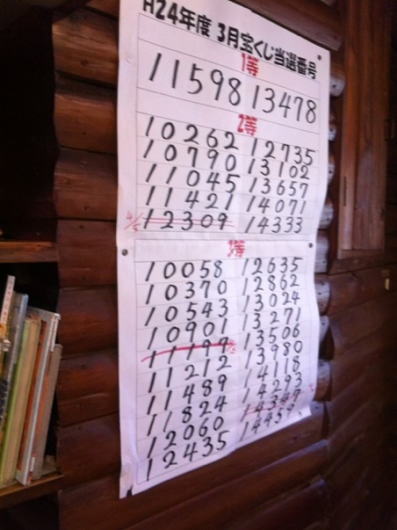 H24年度 3月宝くじ当選番号
1等
11598 13478
2等
10262 12735
10790 13102
11045 13657
11421 14071
12309 14333
3等
10058 12635
10370 12862
10543 13024
10901 13271
11199 13506
11212 13980
11489 14118
11824 14293
12060 14347
12435